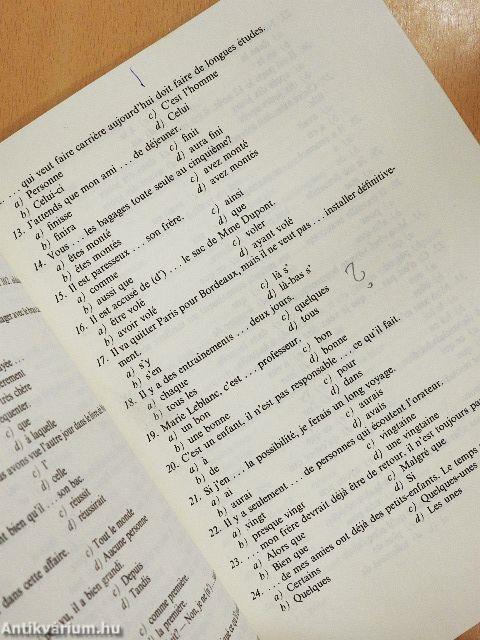 . . . qui veut faire carrière aujourd'hui doit faire de longues études.
a) Personne
b) Celui-ci
c) C'est l'homme
d) Celui
13. J'attends que mon ami . . . de déjeuner.
a) finisse
b) finira
c) finit
d) aura fini
14. Vous . . . les bagages toute seule au cinquième?
a) êtes monté
b) êtes montés
c) avez monté
d) avez montés
15. Il est paresseux . . . son frère.
a) comme
b) aussi que
c) ainsi
d) que
16. Il est accusé de (d') . . . le sac de Mme Dupont.
a) être volé
b) avoir volé
c) voler
d) ayant volé
17. Il va quitter Paris pour Bordeaux, mais il ne veut pas . . . installer définitive-
ment.
a) s'y
b) s'en
c) là s'
d) là-bas s'
18. Il y a des entrainements . . . deux jours.
a) chaque
b) tous les
c) quelques
d) tous
19. Marie Leblanc, c'est . . . professeur.
a) un bon
b) une bonne
c) bon
d) bonne
20. C'est un enfant, il n'est pas responsable . . . ce qu'il fait.
a) à
b) de
c) pour
d) dans
21. Si j'en . . . la possibilité, je ferais un long voyage.
a) ai
b) aurai
c) aurais
d) avais
22. Il y a seulement . . . de personnes qui écoutent l'orateur.
a) vingt
b) presque vingt
c) vingtaine
d) une vingtaine
23. . . . mon frère devrait déjà être de retour, il n'est toujours pa
a) Alors que
b) Bien que
c) Malgré que
d) Si
24. . . . de mes amies ont déjà des petits-enfants. Le temps
a) Certains
b) Quelques
c) Quelques-unes
d) Les unes
très chère
c) que
d) à laquelle
ns vu l'autre jour dans
c) l'
d) celle
nt bien qu'il . . . son bac.
c) réussit
d) réussirait
dans cette affaire.
c) Tout le monde
d) Aucune personne
u, il a bien grandi.
c) Depuis
d) Tandis
c) comme première.
d) la première.
Antikvárium.hu